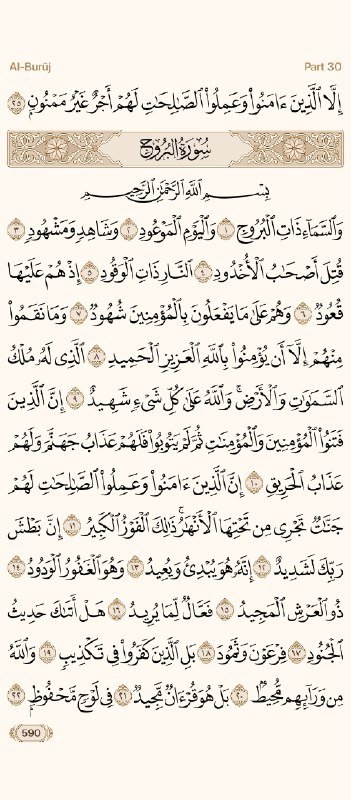 Al-Burūj Part 30
إِلَّا ٱلَّذِينَ ءَامَنُوا۟ وَعَمِلُوا۟ ٱلصَّـٰلِحَـٰتِ لَهُمْ أَجْرٌ غَيْرُ مَمْنُونٍۭ ٢٥
سُورَةُ البُرُوجِ
بِسْمِ ٱللَّهِ ٱلرَّحْمَـٰنِ ٱلرَّحِيمِ
وَٱلسَّمَآءِ ذَاتِ ٱلْبُرُوجِ ١ وَٱلْيَوْمِ ٱلْمَوْعُودِ ٢ وَشَاهِدٍ وَمَشْهُودٍ ٣
قُتِلَ أَصْحَـٰبُ ٱلْأُخْدُودِ ٤ ٱلنَّارِ ذَاتِ ٱلْوَقُودِ ٥ إِذْ هُمْ عَلَيْهَا
قُعُودٌ ٦ وَهُمْ عَلَىٰ مَا يَفْعَلُونَ بِٱلْمُؤْمِنِينَ شُهُودٌ ٧ وَمَا نَقَمُوا۟
مِنْهُمْ إِلَّآ أَن يُؤْمِنُوا۟ بِٱللَّهِ ٱلْعَزِيزِ ٱلْحَمِيدِ ٨ ٱلَّذِى لَهُۥ مُلْكُ
ٱلسَّمَـٰوَٰتِ وَٱلْأَرْضِ ۚ وَٱللَّهُ عَلَىٰ كُلِّ شَىْءٍ شَهِيدٌ ٩ إِنَّ ٱلَّذِينَ
فَتَنُوا۟ ٱلْمُؤْمِنِينَ وَٱلْمُؤْمِنَـٰتِ ثُمَّ لَمْ يَتُوبُوا۟ فَلَهُمْ عَذَابُ جَهَنَّمَ وَلَهُمْ
عَذَابُ ٱلْحَرِيقِ ١٠ إِنَّ ٱلَّذِينَ ءَامَنُوا۟ وَعَمِلُوا۟ ٱلصَّـٰلِحَـٰتِ لَهُمْ
جَنَّـٰتٌ تَجْرِى مِن تَحْتِهَا ٱلْأَنْهَـٰرُ ۚ ذَٰلِكَ ٱلْفَوْزُ ٱلْكَبِيرُ ١١ إِنَّ بَطْشَ
رَبِّكَ لَشَدِيدٌ ١٢ إِنَّهُۥ هُوَ يُبْدِئُ وَيُعِيدُ ١٣ وَهُوَ ٱلْغَفُورُ ٱلْوَدُودُ ١٤
ذُو ٱلْعَرْشِ ٱلْمَجِيدُ ١٥ فَعَّالٌ لِّمَا يُرِيدُ ١٦ هَلْ أَتَىٰكَ حَدِيثُ
ٱلْجُنُودِ ١٧ فِرْعَوْنَ وَثَمُودَ ١٨ بَلِ ٱلَّذِينَ كَفَرُوا۟ فِى تَكْذِيبٍ ١٩ وَٱللَّهُ
مِن وَرَآئِهِم مُّحِيطٌۢ ٢٠ بَلْ هُوَ قُرْءَانٌ مَّجِيدٌ ٢١ فِى لَوْحٍ مَّحْفُوظٍۭ ٢٢
590